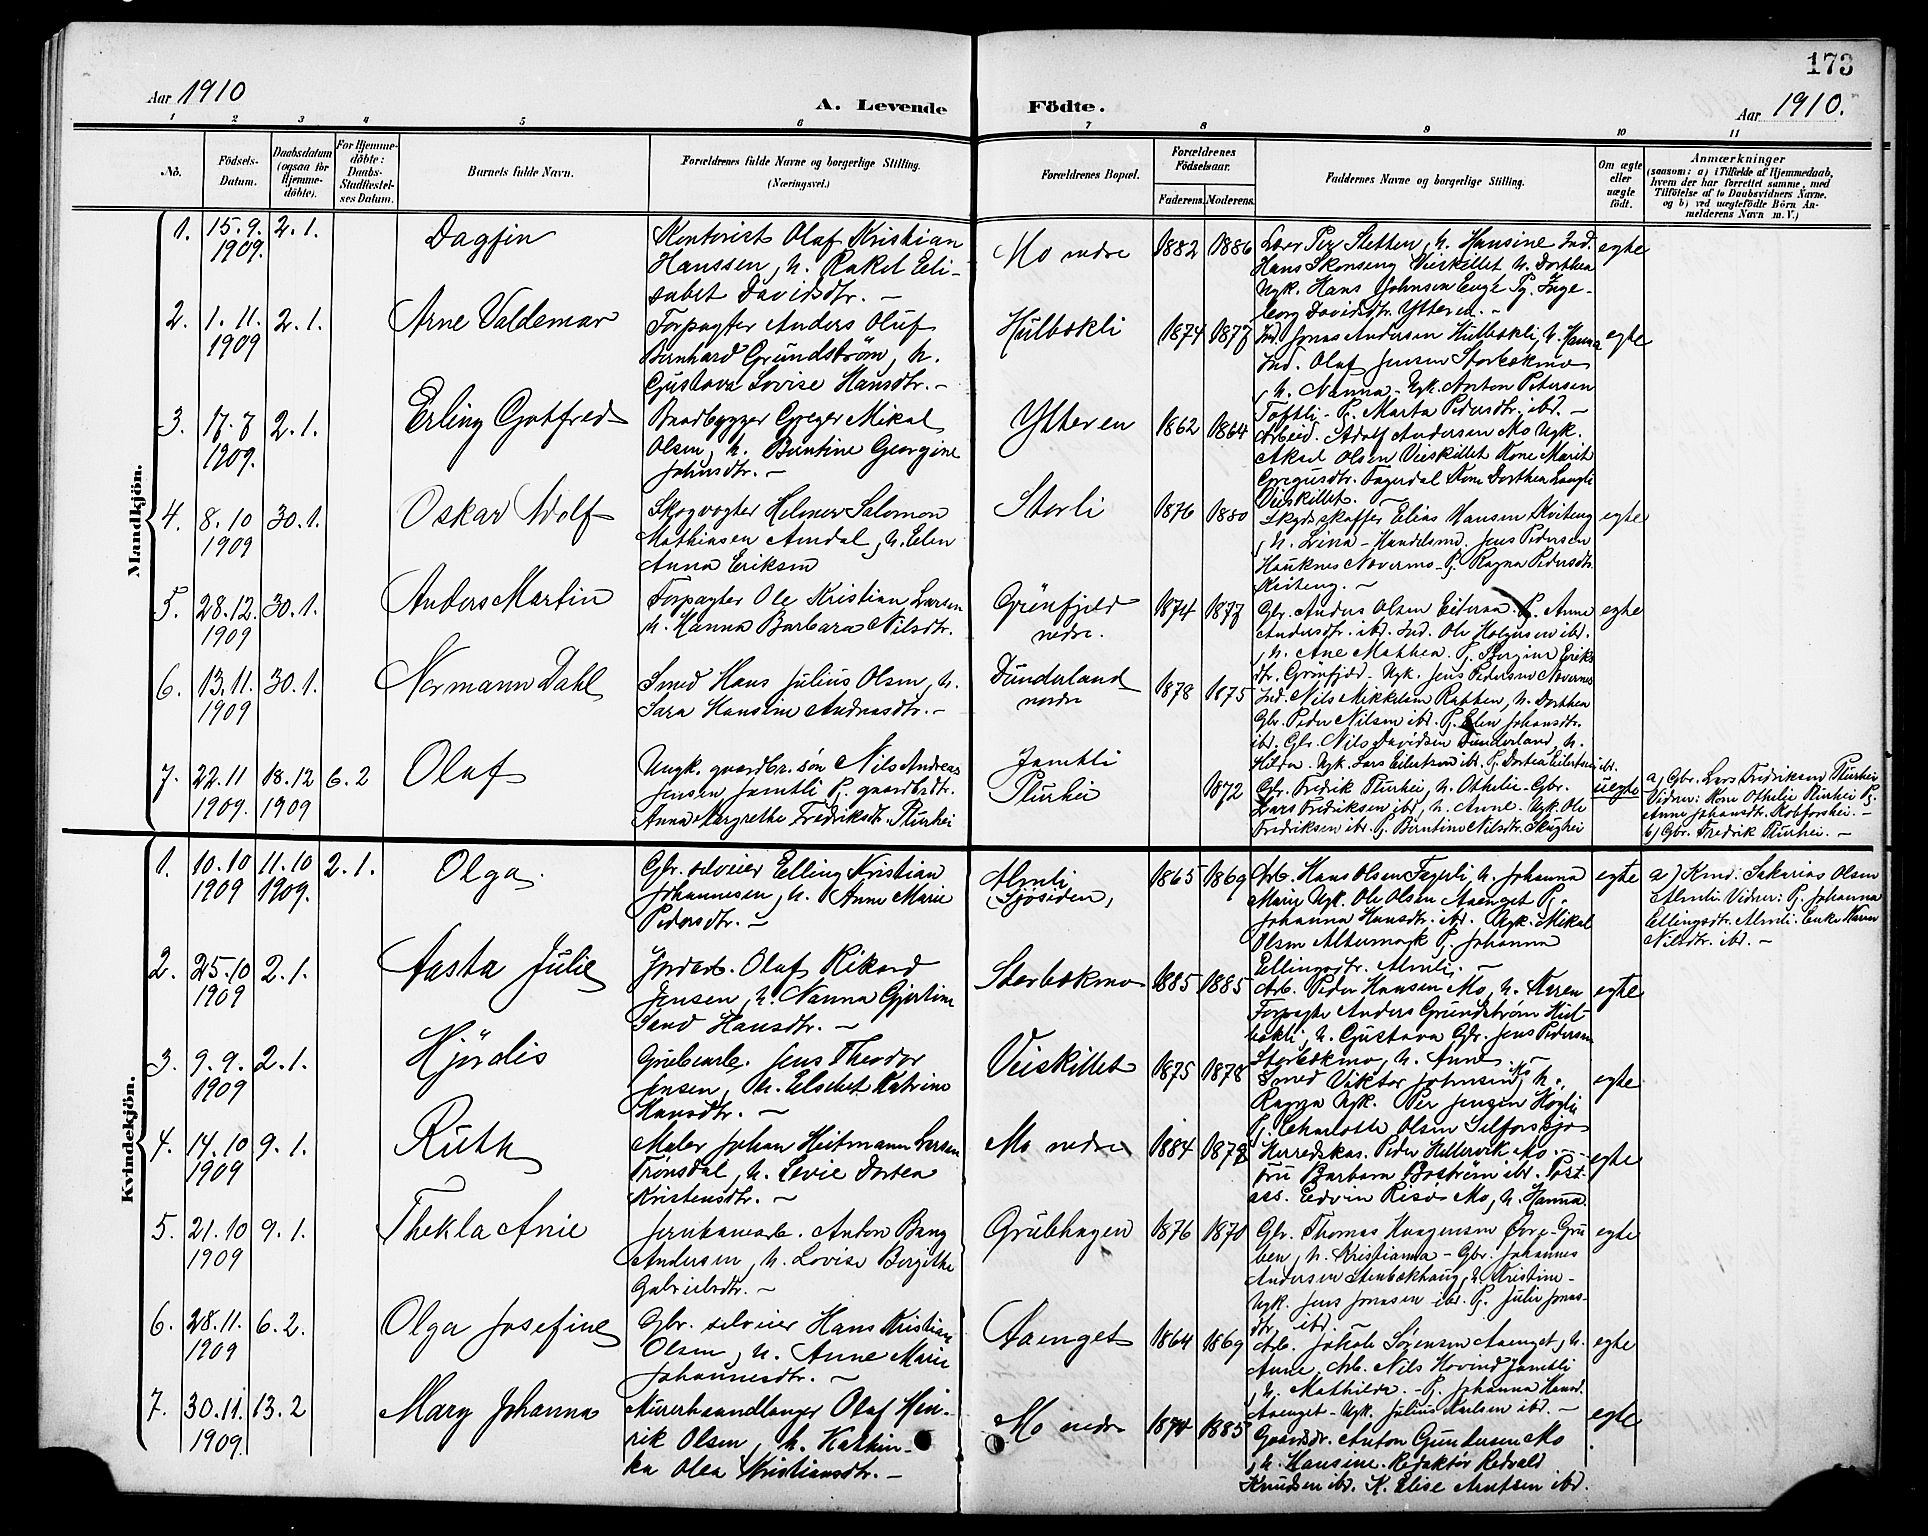 173
Aar 1910
A. Levende Födte.
Aar 1910.
1 2 3 4 5 6 7 8 9 10 11
No.
Födsels-Datum.
Daabsdatum (ogsaa for Hjemmedöbte).
For Hjemmedöbte: Daabs-Stadfæstelses Datum.
Barnets fulde Navn.
Forældrenes fulde Navne og borgerlige Stilling.
(Næringsvei.)
Forældrenes Bopæl.
Forældrenes Födselsaar.
Faderens. Moderens.
Faddernes Navne og borgerlige Stilling.
Om ægte eller uægte födt.
Anmærkninger
(saasom: a) i Tilfælde af Hjemmedaab,
hvem der har forrettet samme, med
Tilföielse af to Daabsvidners Navne,
og b) ved uægtefödte Börn Anmelderens Navn m. V.)
Mandkjön.
1. 15.9. 1909. 2.1. Dagfin
Kontorist Olaf Kristian
Hanssen, h. Rakel Eli-
sabet Davidsdtr. –
Mo nedre 1882 1886
Hans Skonseng Veiskillet h. Dorthea
Ugk. Hans Johnsen Enge Pg. Inge-
borg Davidsdtr. Ytteren. –
egte
2. 1.11. 1909 2.1. Arne Valdemar
Forpagter Anders Oluf
Bernhard Grundstrøm, h.
Gustava Lovise Hansdtr. –
Hulbækli 1874 1877
Ind. Jonas Andersen Hulbækli, h. Hanna
Ind. Olaf Jensen Storbækmo
h. Nanna. Ugk. Anton Petersen
Toftli – Pg. Marta Pedersdtr. ibd. –
egte
3. 17.7 1909. 2.1. Erling Gotfred
Baadbygger Greger Mikal
Olsen, h. Berntine Georgine
Johnsdtr. –
Ytteren 1862 1864
Arbeid. Adolf Andersen Mo Ugk.
Aksel Olsen Veiskillet Kone Marit
Gregusdtr. Fagerdal Kone Dorthea Langli
Veiskillet.
4. 8.10 1909 30.1. Oskar Adolf
Skogvogter Helmer Salomon
Mathiasen Amdal, h. Elen
Anna Eriksen
Storli 1876 1880
Skydsskaffer Elias Hansen Hviteng
h. Lina – Handelsmd. Jens Pedersen
Hauknes Novernes – Pg. Ragna Pedersdtr.
Kviteng. –
egte
5. 28.12. 1909 30.1. Anders Martin
Forpagter Ole Kristian Larsen
h. Hanna Barbara Nilsdtr.
Grönfjeld nedre. 1874 1877
Gbr. Anders Olsen Eiteraa. Pg. Anne
Andersdtr. ibd. Ind. Ole Holgersen ibd.
h. Ane Mathea. Pg. Jørgine Eriks
dtr. Grönfjeld – Ugk. Jens Pedersen Novernes
egte
6. 13.11. 1909 30.1. Normann Dahl
Smed Hans Julius Olsen, h.
Sara Hansine Andreasdtr. –
Dunderland nordre 1878 1875
Ind. Nils Mikkelsen Rabben, h. Dorthea
Gbr. Peder Nilsen ibd. Pg. Elen Johansdtr.
ibd. Gbr. Nils Davidsen Dunderland, h.
Hilda. Ugk. Lars Eilertsen ibd. Pg. Dortea Eilertsen ibd.
7. 22.11 1909. 18.12 1909 6.2 Olaf
Ungk. gaardbr. søn Nils Andreas
Jensen Jamtli Pg. gaardbrdtr.
Anna Margrethe Fredriksdtr. Plurhei
Jamtli
Plurhei
1872
Gbr. Fredrik Plurhei, h. Othelie. Gbr.
Lars Fredriksen ibd, h. Anne. Ugk. Ole
Fredriksen ibd. Pg. Berntine Nilsdtr. Skughei
uegte
a) Gbr. Lars Fredriksen Plurhei
Vidner: Kone Othelie Plurhei Pg.
Anne Johansdtr. Kobforshei. –
b) Gbr. Fredrik Plurhei. –
Kvindekjön.
1. 10.10 1909 11.10 1909. 2.1. Olga
Gbr. selveier Elling Kristian
Johannesen, h. Anne Marie
Pedersdtr. –
Almli (Sjøsiden) 1865 1869
Arb. Hans Olsen Fagerli h. Johanna
Marie Ugk. Ole Olsen Aaenget Pg.
Johanna Hansdtr. ibd. Ugk. Mikal
Olsen Altermark Pg. Johanna
Ellingsdtr. Almli. –
egte
a) Kmd. Sakarias Olsen
Almli. Vidner: Pg. Johanna
Ellingsdtr. Almli. Enke Karen
Nilsdtr. ibd. –
2. 25.10 1909 2.1. Aasta Julie
Jordarb. Olaf Rikard
Jensen, h. Nanna Gjertine
Sand Hansdtr. –
Storbækmo 1885 1885
Arb. Peder Hansen Mo, h. Karen
Forpagter Anders Grundstrøm Hul-
bækli, h. Gustava Gbr. Jens Pedersen
Storbækmo, h. Anne. –
egte
3. 9.9. 1909 2.1. Hjördis
Grubearb. Jens Theodor
Jensen, h. Elsebet Katrine
Hansdtr. –
Veiskillet 1875 1878
Smed Viktor Johnsen Mo, h.
Ragna Ugk. Per Jensen Høgli
Pg. Charlotte Olsen Selforssjø
egte
4. 14.10 1909 9.1. Ruth
Maler Johan Heitmann Larsen
Trønsdal, h. Levie Dortea
Kristensdtr. –
Mo nedre 1884 1878
Herredskas. Peder Hellervik Mo. –
Fru Barbara Boström ibd. Post-
ass. Edvin Risö Mo, h. Hanna.
egte
5. 21.10 1909 9.1. Thekla Arnie
Jernbanearb. Anton Bang
Andersen, h. Lovise Bergithe
Gabrielsdtr. –
Grubhagen 1876 1870
Gbr. Thomas Haagensen Øvre Gru
ben, h. Kristianna – Gbr. Johannes
Andersen Stenbækhaug, h. Kristine –
Ugk. Jens Jonasen ibd. Pg. Julie Jonas-
dtr. ibd. –
egte
6. 28.11. 1909 6.2. Olga Josefine
Gbr. selveier Hans Kristian
Olsen, h. Anne Marie
Johannesdtr. –
Aaenget 1864 1869
Arb. Jakob Sørensen Aaenget, h.
Anne, Arb. Nils Hovind Jamtli
h. Mathilde. – Pg. Johanna Hansd.
Aaenget – Ugk. Julius Karlsen ibd. –
egte
7. 30.11. 1909. 13.2 Mary Johanna
Murerhaandlanger Olaf Hen-
rik Olsen, h. Kathin-
ka Olea Kristiansdtr. –
Mo nedre 1874 1885
Gaardbr. Anton Gundersen Mo
h. Hansine. Redaktör Redvald
Knudsen ibd. K. Elise Arntsen ibd.
egte